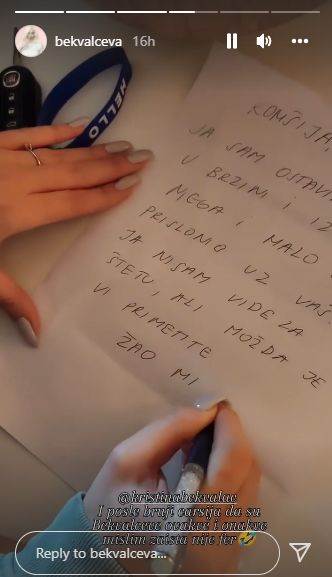 bekvalceva 16h
HELLO
KOMŠIJA,
JA SAM OSTAVI
U BRZINI I IZ
NJEGA I MALO
PRISLONIO UZ VAŠ
JA NISAM VIDELA
ŠTETU, ALI MOŽDA JE
VI PRIMETITE
ŽAO MI
@kristinabekvalac
I posle bruji carsija da su
Bekvalceve ovakve i onakve
mislim zaista nije fer🤣
Reply to bekvalceva...